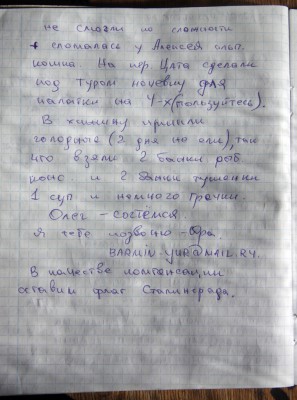 не смогли по сложности
+ сломалась у Алексея альп.
кошка. На пер. Цата сделали
под туром ночевку для
палатки на 4-х (пользуйтесь).
В хижину пришли
голодные (2 дня не ели), так
что взяли 2 банки рыб
конс и 2 банки тушенки
1 суп и немного гречки.
Олег - состёлся.
я тебе позвоню -
BARMIN.YUR@MAIL.RU.
В качестве компенсации
оставим флаг Сталинграда.